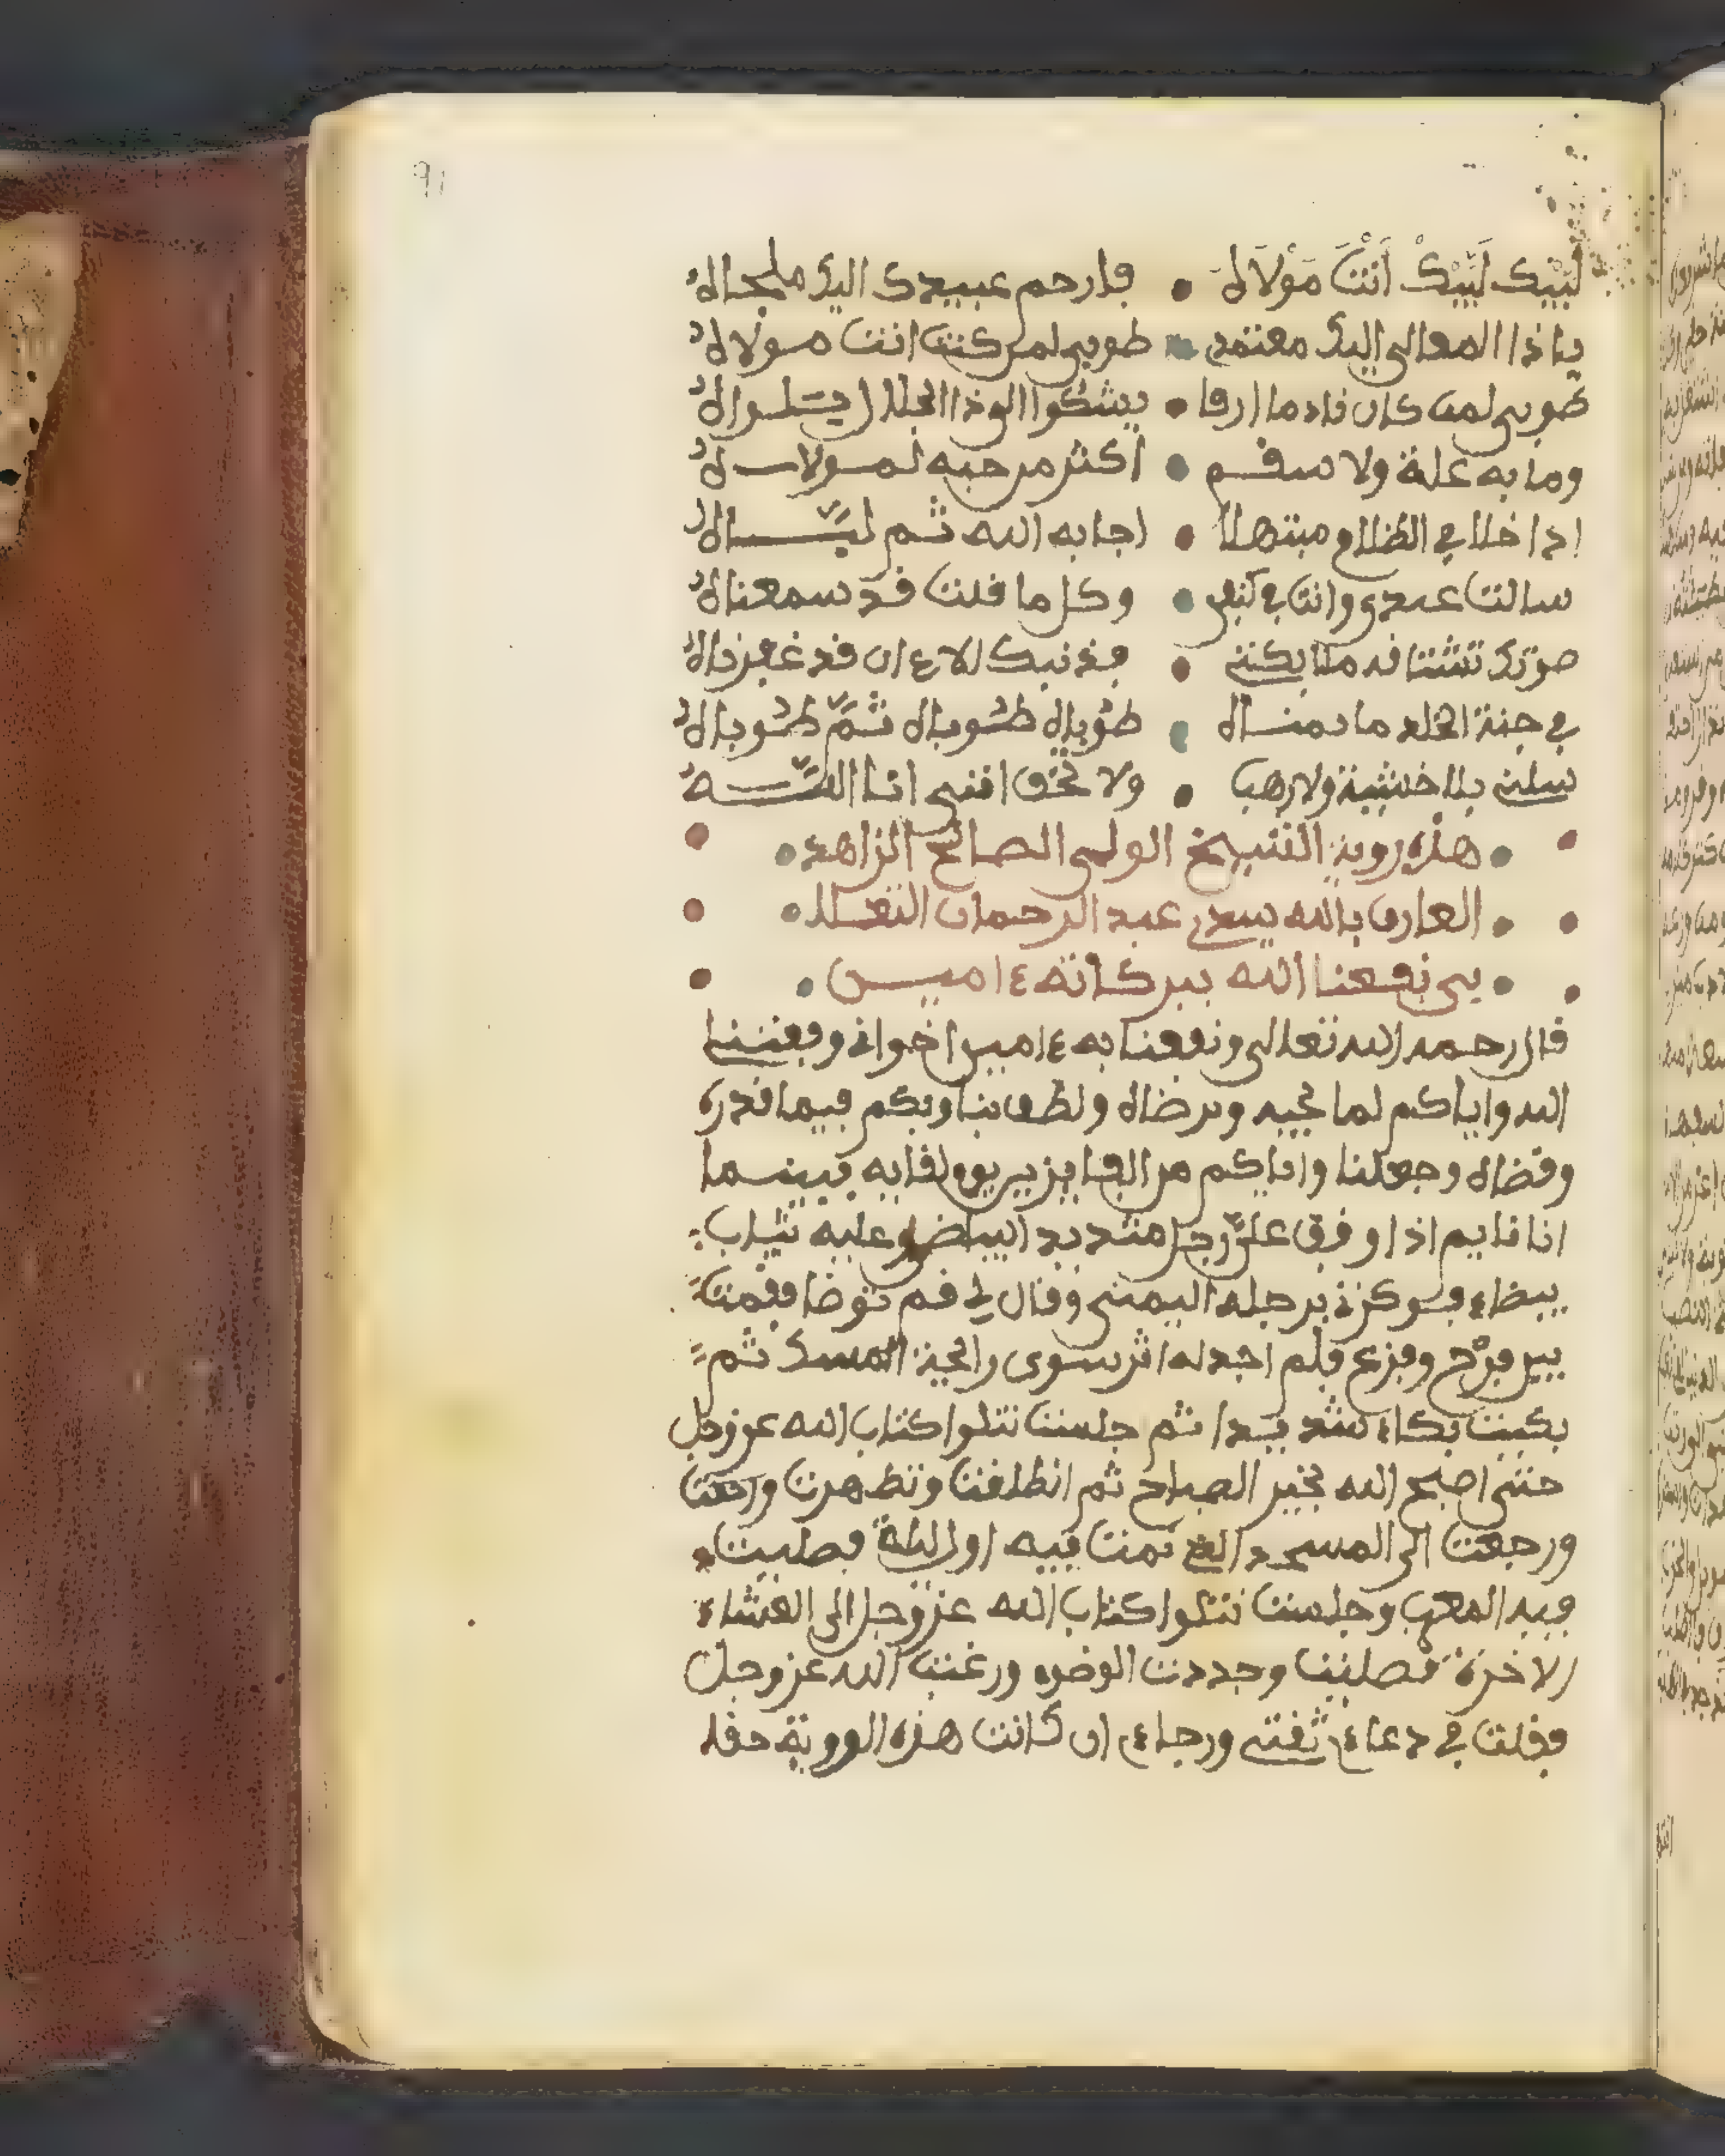 91
لَبَّيْكَ لَبَّيْكَ أَنْتَ مَوْلَاهُ • فارحم عبيدك اليك ملجاهُ
يا ذا المعالي اليك معتمدي • طوبى لمن كنت انت مولاهُ
طوبى لمن كان نادما ارقا • يشكوا الى ذا الجلال بلواهُ
وما به علة ولا سقم • اكثر من حبه لمولاهُ
اذا خلا في الظلام مبتهلا • اجابه الله ثم لبّاهُ
سالت عبدي وانت في كنفي • وكل ما قلت قد سمعناهُ
صوتك تشتاقه ملايكتي • فذنبك الان قد غفرناهُ
في جنة الخلد ما تمناه • طوباه طوباه ثمّ طوباهُ
سلني بلا خشية ولا رهب • ولا تخف انني انا اللّـــهُ
هذه روية الشيخ الولي الصالح الزاهد
العارف بالله سيدي عبد الرحمان الثعــلا
بي نفعنا الله ببركاته ءاميــن
قال رحمه الله تعالى ونفعنا به ءامين اخواني وفقننا
الله واياكم لما يحبه ويرضاه ولطف بنا وبكم فيما قدره
وقضاه وجعلنا واياكم من الفايزين يوم لقايه بينما
انا نايم اذا وقف عليّ رجل شديد البياض وعليه ثياب
بيضاء فوكزني برجله اليمنى وقال لي قم توضا فقمت
بين فرح وفزع فلم اجد له اثر سوى رايحة المسك ثم
بكيت بكاء شديدا ثم جلست نتلوا كتاب الله عز وجل
حتى اصبح الله بخير الصباح ثم انطلقت وتطهرت ورجعت
ورجعت الى المسجد الذي نمت فيه اول ليلة فصليت
فيه المغرب وجلست نتلوا كتاب الله عز وجل الى العشاء
الاخرة فصليت وجددت الوضوء ورغبت الله عز وجل
فقلت في دعاءي ثقتي ورجاءي ان كانت هذه الروية حقا